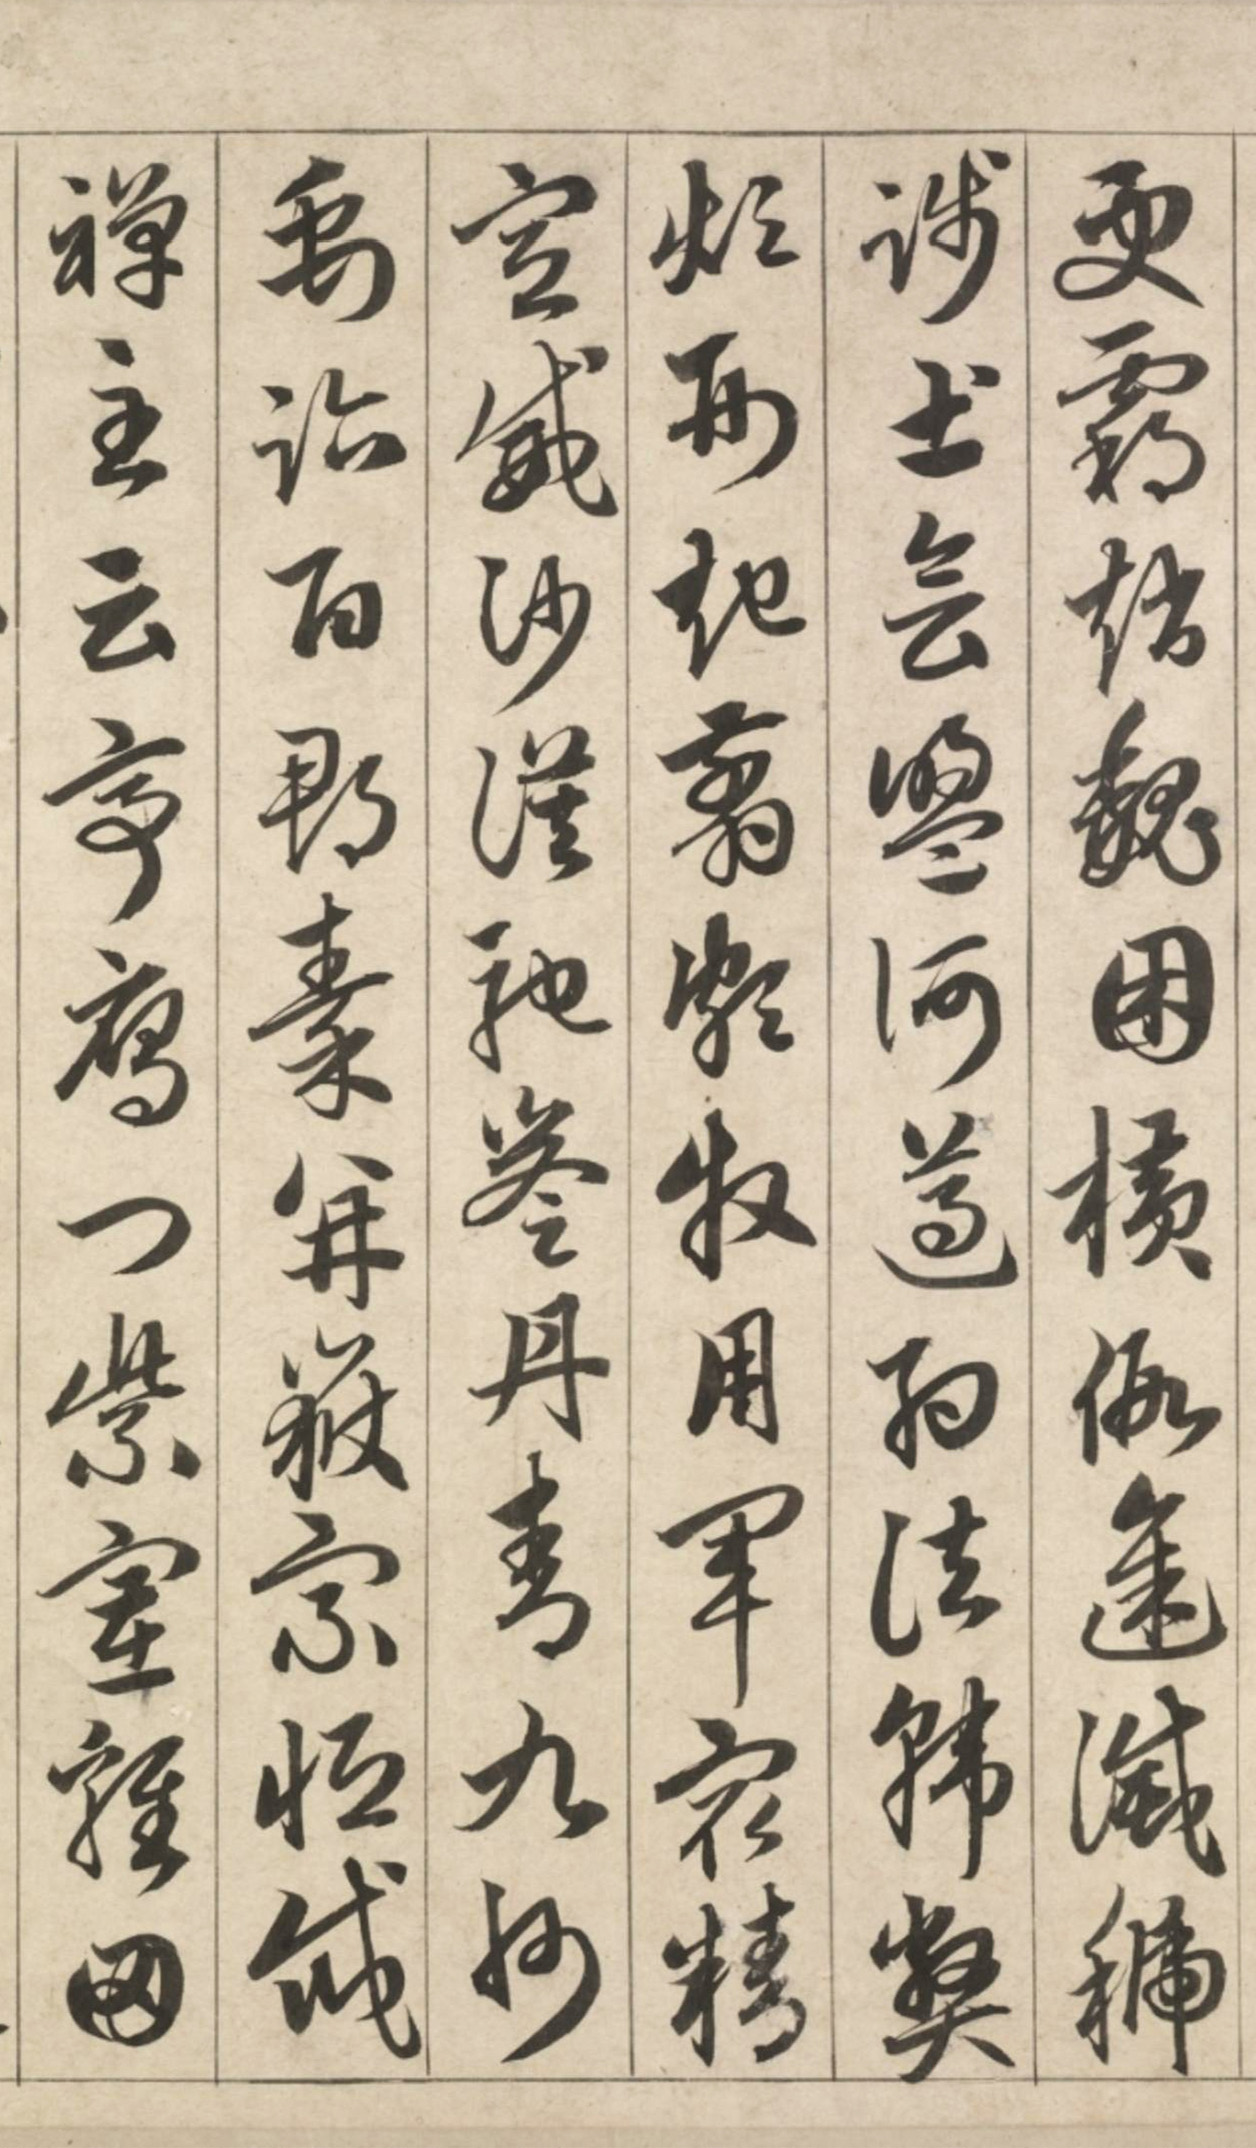 更霸趙魏困橫假途滅虢
踐土會盟何遵約法韓弊
煩刑起翦頗牧用軍最精
宣威沙漠馳譽丹青九州
禹跡百郡秦并嶽宗恒岱
禪主云亭雁門紫塞雞田